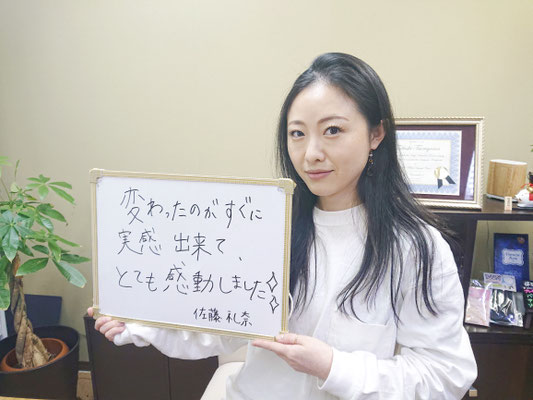 変わったのがすぐに
実感出来て、
とても感動しました✧✧
佐藤 礼奈